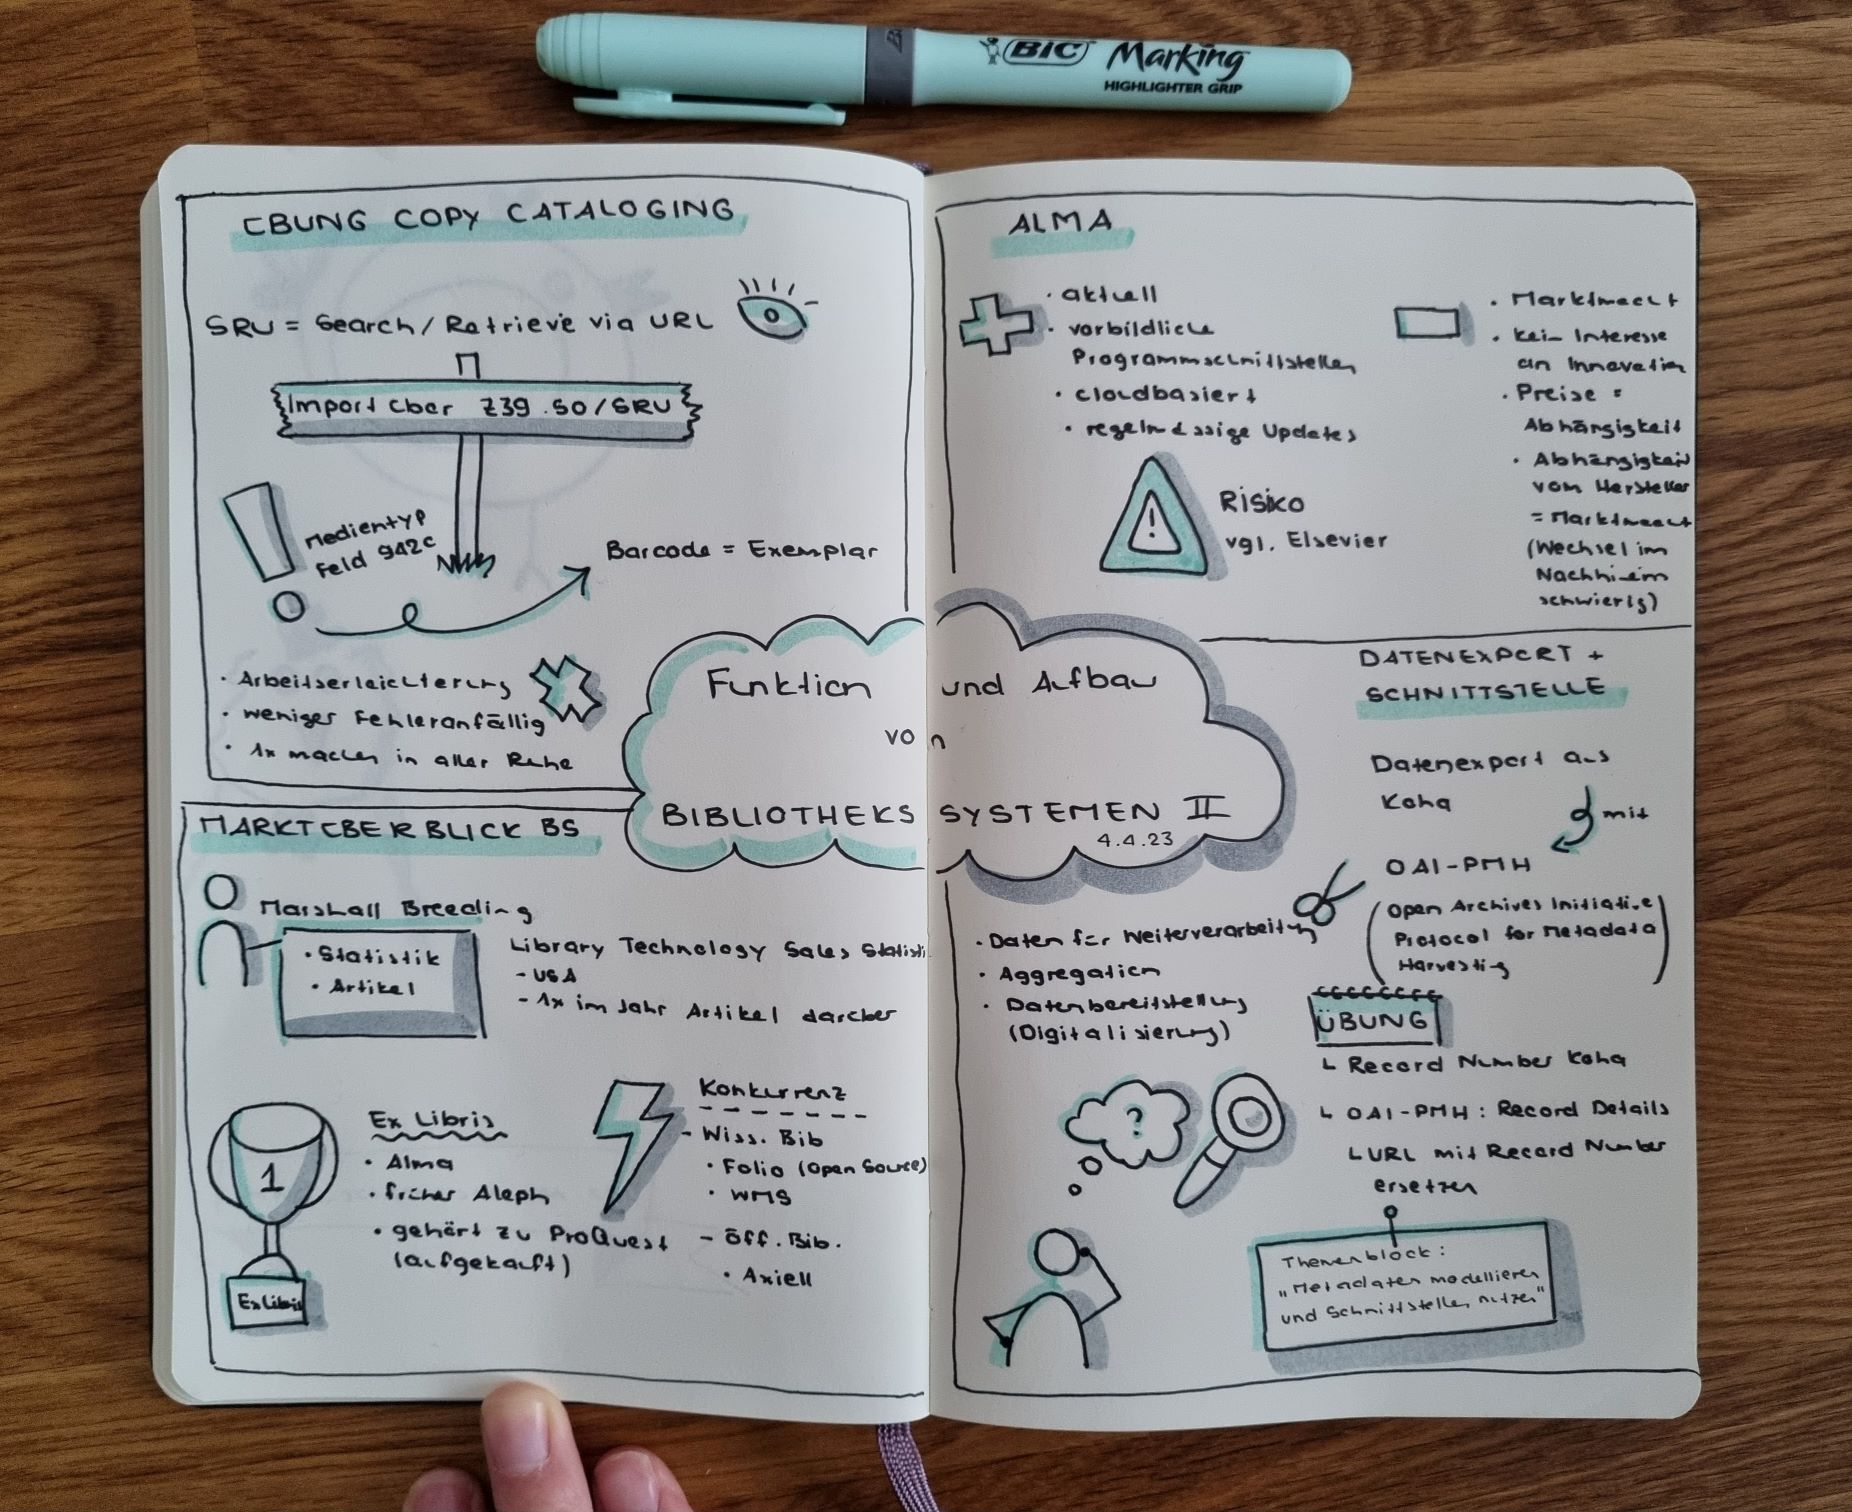 BIC Marking
HIGHLIGHTER GRIP
ÜBUNG COPY CATALOGING
SRU = Search/Retrieve via URL
Import über Z39.50/SRU
Medientyp
Feld 942c
Barcode = Exemplar
· Arbeitserleichterung
· weniger Fehleranfällig
· 1x machen in aller Ruhe
Funktion und Aufbau
von
BIBLIOTHEKSSYSTEMEN II
4.4.23
MARKTÜBERBLICK BS
Marshall Breeding
· Statistik
· Artikel
Library Technology Sales Statisti
- USA
- 1x im Jahr Artikel darüber
1
Ex Libris
Ex Libris
· Alma
· früher Aleph
· gehört zu ProQuest
(aufgekauft)
Konkurrenz
- Wiss. Bib
· Folio (Open Source)
· WMS
- öff. Bib.
· Axiell
ALMA
· aktuell
· vorbildliche
Programmschnittstellen
· cloudbasiert
· regelmässige Updates
· Marktmacht
· kein Interesse
an Innovation
· Preise =
Abhängigkeit
· Abhängigkeit
vom Hersteller
= Marktmacht
(Wechsel im
Nachhinein
schwierig)
!
Risiko
vgl. Elsevier
DATENEXPORT +
SCHNITTSTELLE
Datenexport aus
Koha
mit
OAI-PMH
(Open Archives Initiative
Protocol for Metadata
Harvesting)
· Daten für Weiterverarbeitung
· Aggregation
· Datenbereitstellung
(Digitalisierung)
ÜBUNG
↳ Record Number Koha
↳ OAI-PMH: Record Details
↳ URL mit Record Number
ersetzen
?
Themenblock:
„Metadaten modellieren
und Schnittstellen nutzen"